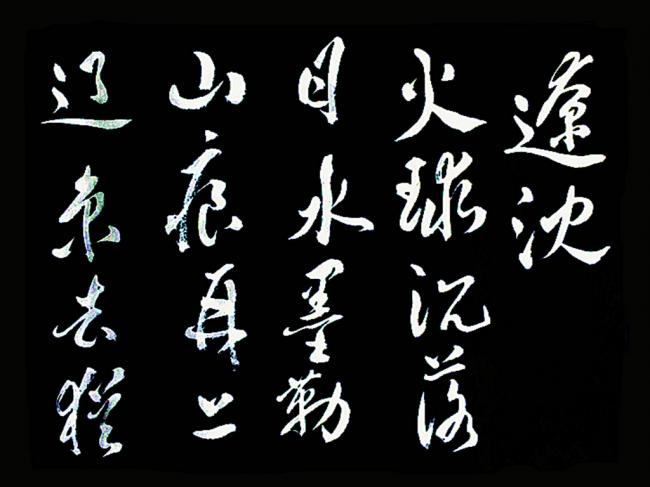 遼沈
火球沉落
日水墨勒
山痕再上
辽东去猶